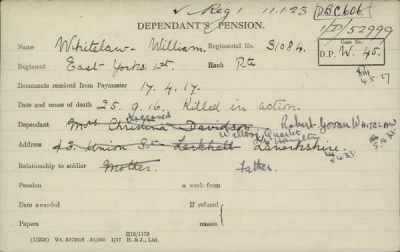 ✓ Reg 1 11.1.23 DBC606
DEPENDANT'S PENSION. 1/D/52999
Name Whitelaw - William. Regimental No. 31084. Case No.
Regiment East Yorks. 1st. Rank Pte D.P. W. 45.
Documents received from Paymaster 17.4.17. 4.5.27
Date and cause of death 25.9.16. Killed in action.
Deceased
Dependant Mrs Christina Davidson Robert Gowan Whitelaw
Wellbrae Quarter
Address 43 Union St. Larkhall Lanarkshire.
Relationship to soldier Mother. Father.
Pension a week from
Date awarded If refused
Papers reason
H16/1179
(11233) 50,000 1/17 H. & J., Ltd.